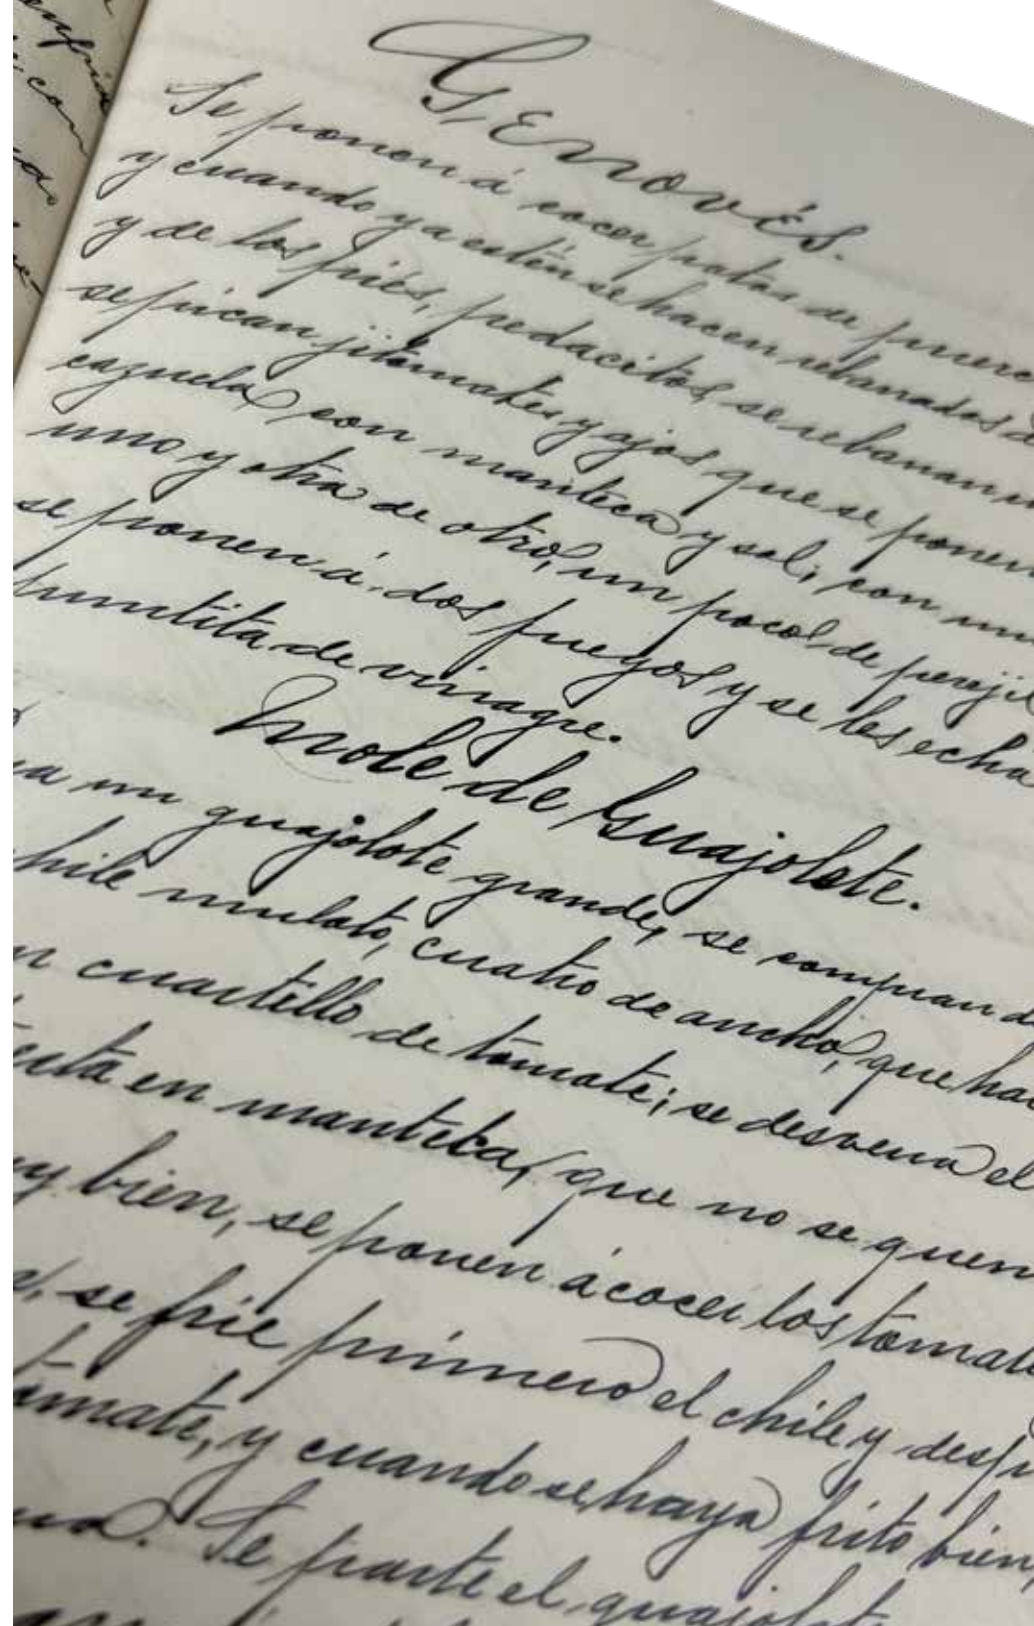 Genovés.
Se ponen á cocer patas de puerc
y cuando ya estén se hacen rebanadas d
y de los piés, pedacitos, se rebanan
se pican jitomates y ajos que se ponen
cazuela con manteca y sal; con un
uno y otra de otro, un poco de perejil
se ponen á dos fuegos y se les echa
puntita de vinagre.
Mole de Guajolote.
a un guajolote grande, se compran d
hile mulato, cuatro de ancho, que ha
n cuartillo de tomate; se desvena el
esta en manteca, que no se quem
uy bien, se ponen á cocer los tomate
se frie primero el chile y desp
omate, y cuando se haya frito bien,
Se parte el guajolote